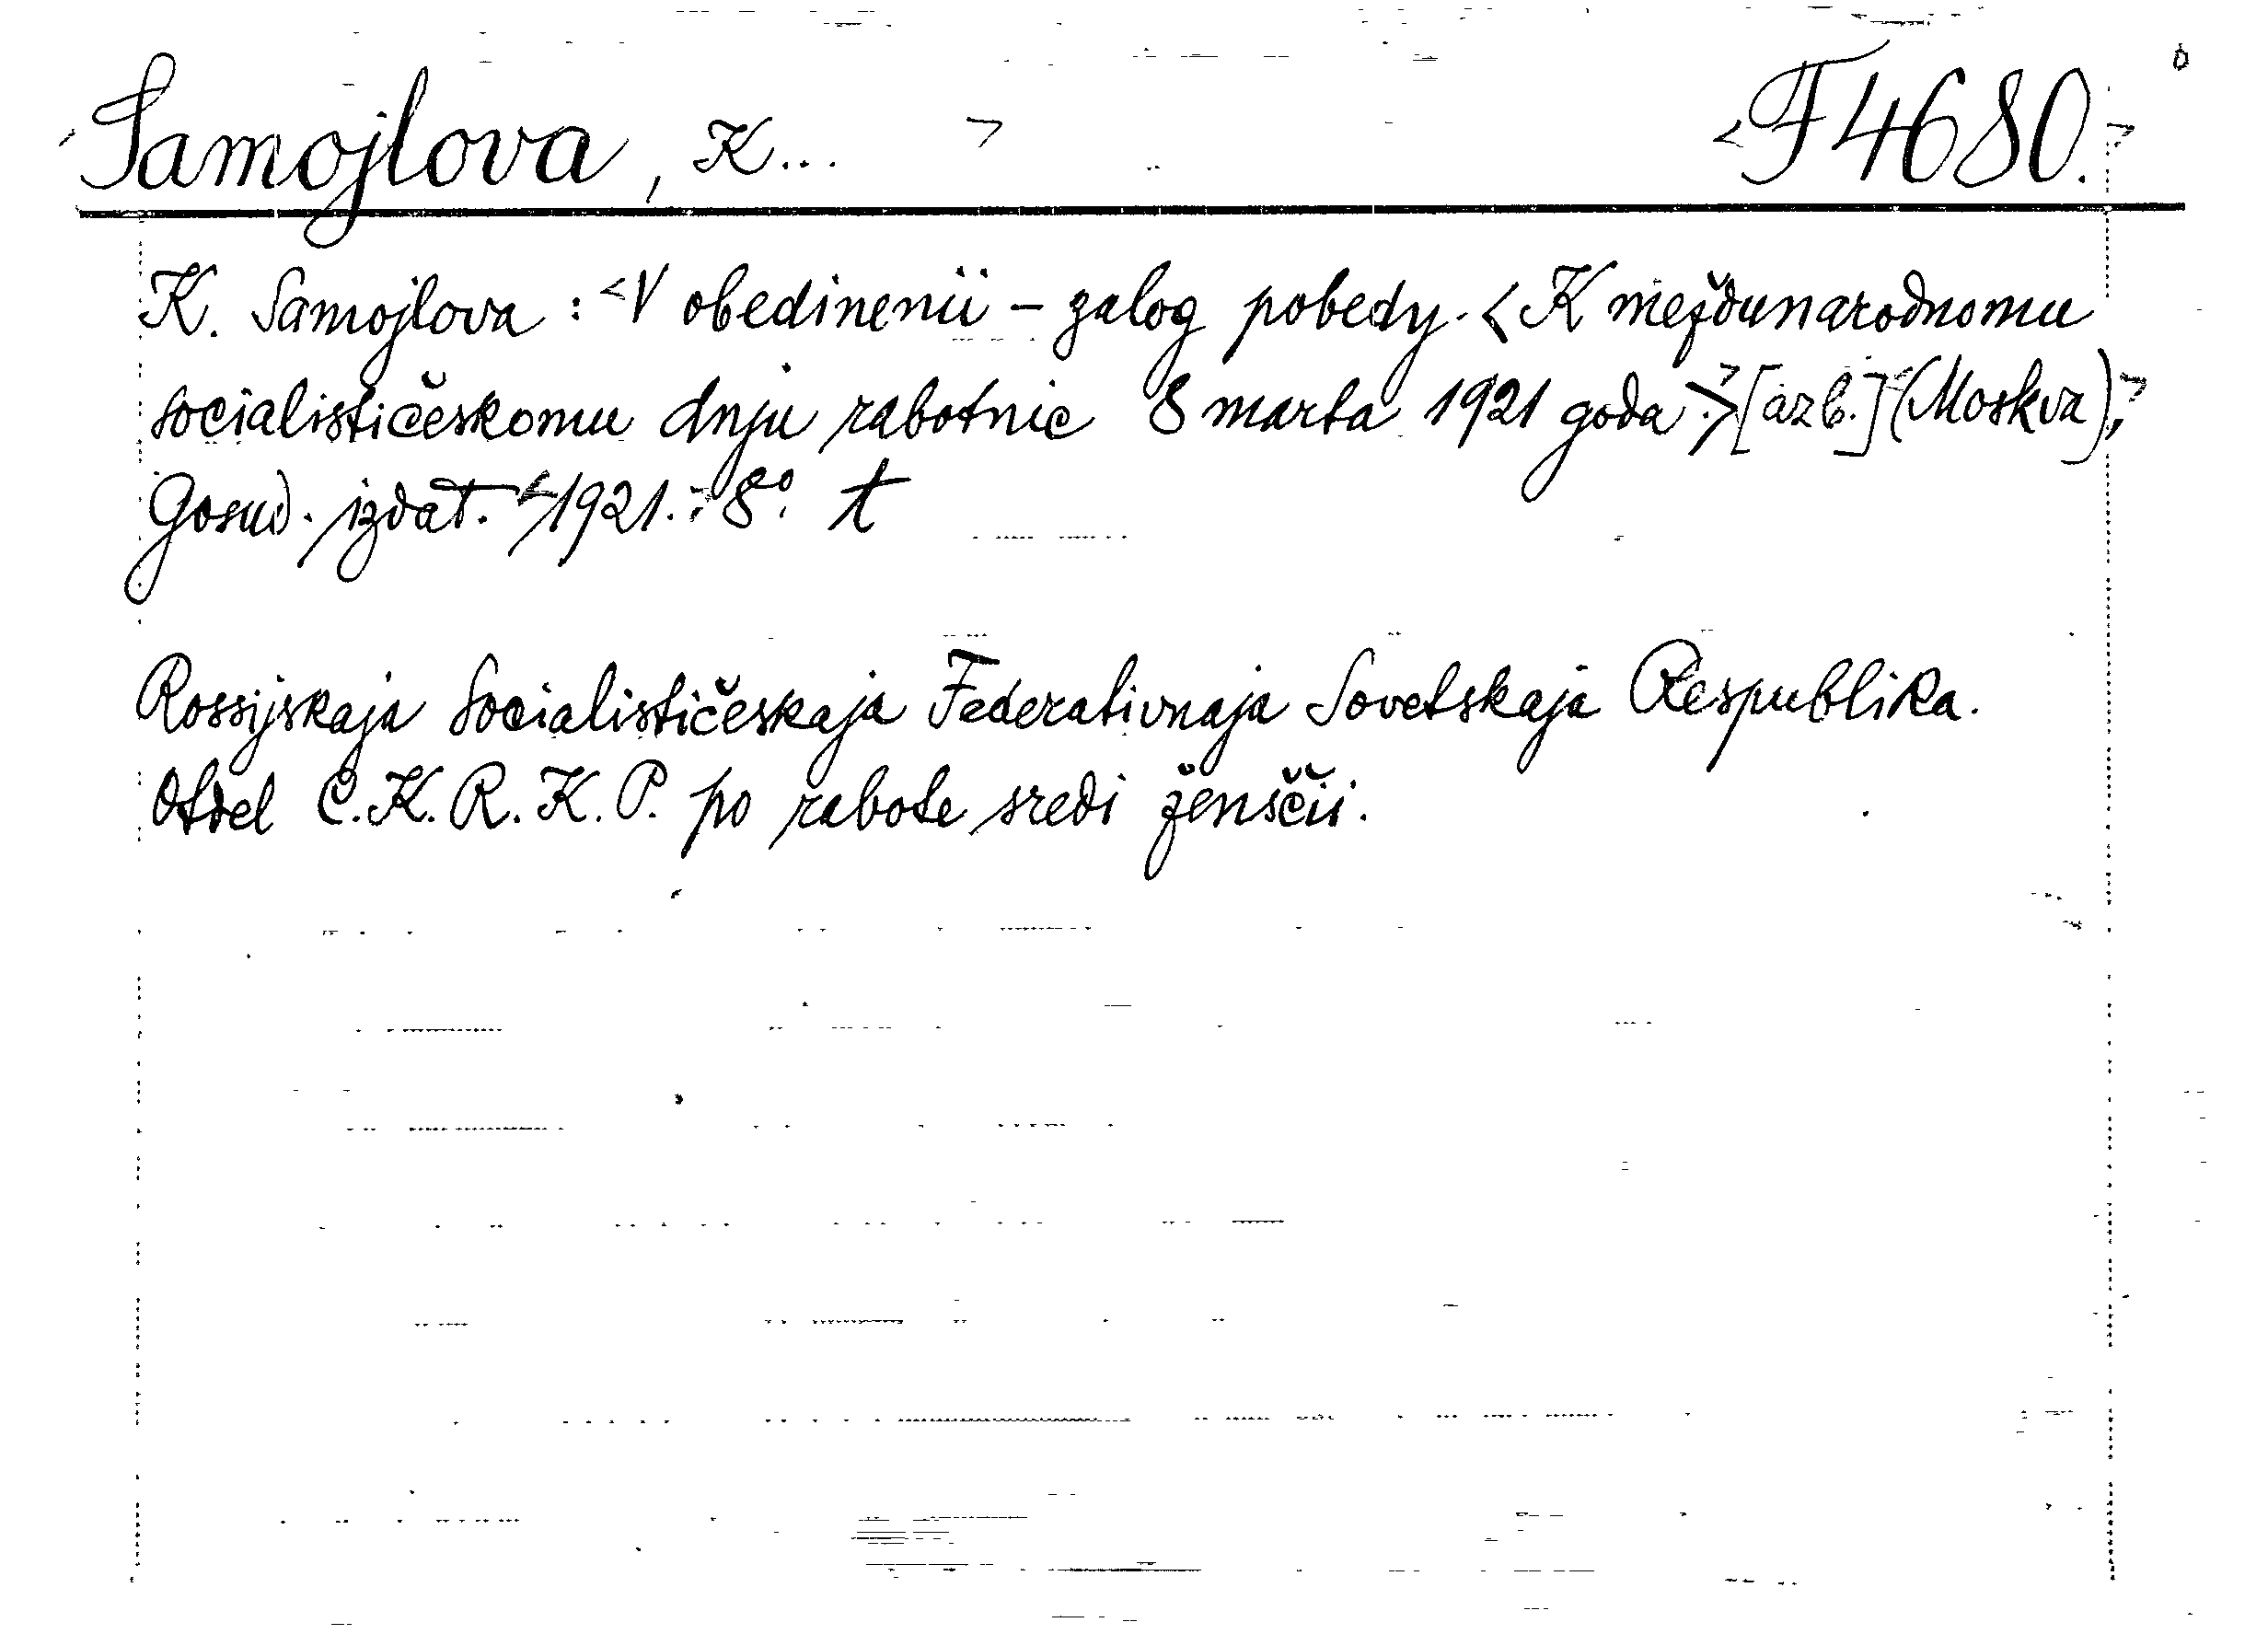 Samojlova, K... > <F 4680.>
K. Samojlova : <V obedinenii – zalog pobedy. < K meždunarodnomu
socialističeskomu dnju rabotnic 8 marta 1921 goda.>> [azb.] (Moskva),>
Gosud. izdat. <1921.> 8° t
Rossijskaja Socialističeskaja Federativnaja Sovetskaja Respublika.
Otdel C. K. R. K. P. po rabote sredi ženščii.